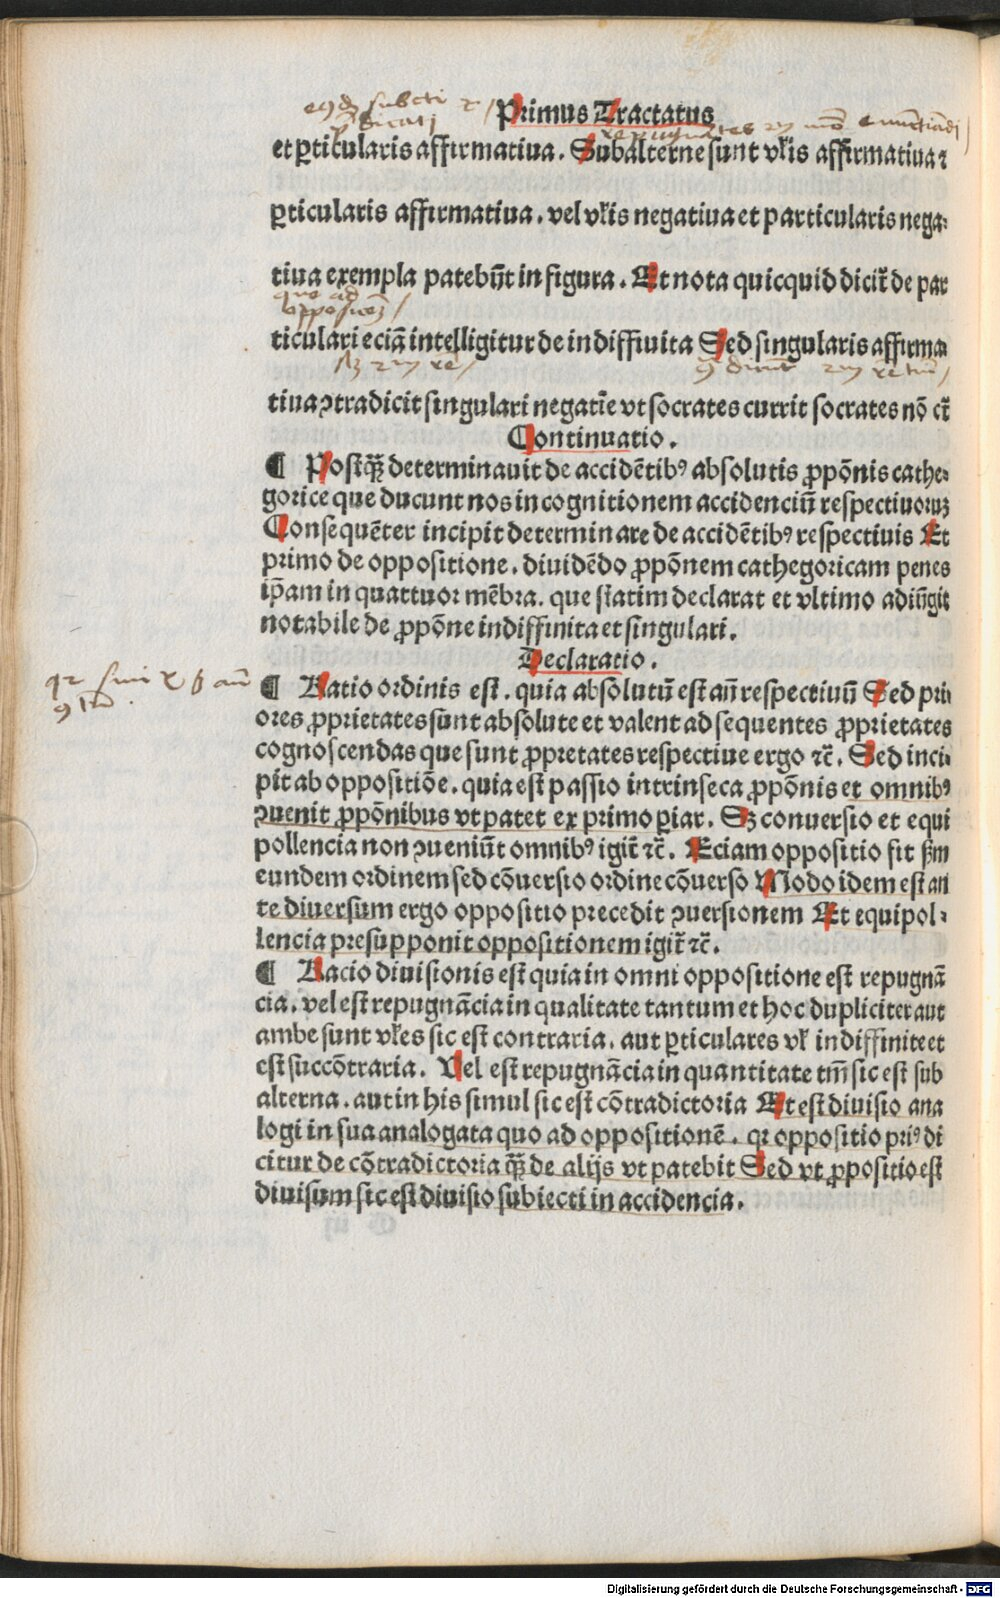 Primus Tractatus
et ꝑticularis affirmatiua. Subalterne sunt vl̓is affirmatiua ⁊
ꝑticularis affirmatiua. vel vl̓is negatiua et particularis nega⸗
tiua exempla patebūt in figura. Et nota quicquid dicit̄ de par
ticulari eciā intelligitur de indiffiuita Sed singularis affirma
tiua ꝯtradicit singulari negatīe vt socrates currit socrates nō cr̄
Continuatio.
¶ Postq̄ꝫ determinauit de accidētibꝰ absolutis ꝓpōnis cathe⸗
gorice que ducunt nos in cognitionem accidenciū respectiuoruꝫ
Consequēter incipit determinare de accidētibꝰ respectiuis Et
primo de oppositione. diuidēdo ꝓpōnem cathegoricam penes
ip̄am in quattuor mēbra. que statim declarat et vltimo adiūgit
notabile de ꝓpōne indiffinita et singulari.
Declaratio.
¶ Ratio ordinis est. quia absolutū est an̄ respectiuū Sed pri
ores ꝓprietates sunt absolute et valent ad sequentes ꝓprietates
cognoscendas que sunt ꝓpretates respectiue ergo ⁊c̄. Sed inci⸗
pit ab oppositiōe. quia est passio intrinseca ꝓpōnis et omnibꝰ
ꝯuenit ꝓpōnibus vt patet ex primo ꝑiar. Sꝫ conuersio et equi
pollencia non ꝯueniūt omnibꝰ igit̄ ⁊c̄. Eciam oppositio fit ẜm
eundem ordinem sed cōuersio ordine cōuerso Modo idem est an
te diuersum ergo oppositio precedit ꝯuersionem Et equipol⸗
lencia presupponit oppositionem igit̄ ⁊c̄.
¶ Racio diuisionis est quia in omni oppositione est repugnā
cia. vel est repugnācia in qualitate tantum et hoc dupliciter aut
ambe sunt vl̓es sic est contraria. aut ꝑticulares vl̓ indiffinite et
est succōtraria. Vel est repugnācia in quantitate tm̄ sic est sub
alterna. aut in his simul sic est cōtradictoria Et est diuisio ana
logi in sua analogata quo ad oppositionē. qꝛ oppositio priꝰ di
citur de cōtradictoria q̄ꝫ de alijs vt patebit Sed vt ꝓpositio est
diuisum sic est diuisio subiecti in accidencia.
Digitalisierung gefördert durch die Deutsche Forschungsgemeinschaft - DFG